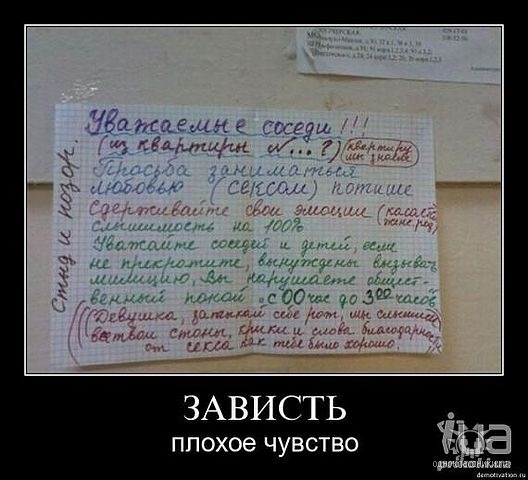 Уважаемые соседи!!!
(из квартиры № ...?) (квартиру мы знаем)
Просьба заниматься
любовью (сексом) потише
Сдерживайте свои эмоции (касается жен. род)
слышимость на 100%
Уважайте соседей и детей, если
не прекратите, вынуждены вызывать
милицию, Вы нарушаете общест-
венный покой "с 00 час до 3 00 часов"
(Девушка, затыкай себе рот, мы слышим
все твои стоны, крики и слова благодарности
от секса как тебе было хорошо.
Стыд и позор.
ЗАВИСТЬ
плохое чувство
demotivation.ru